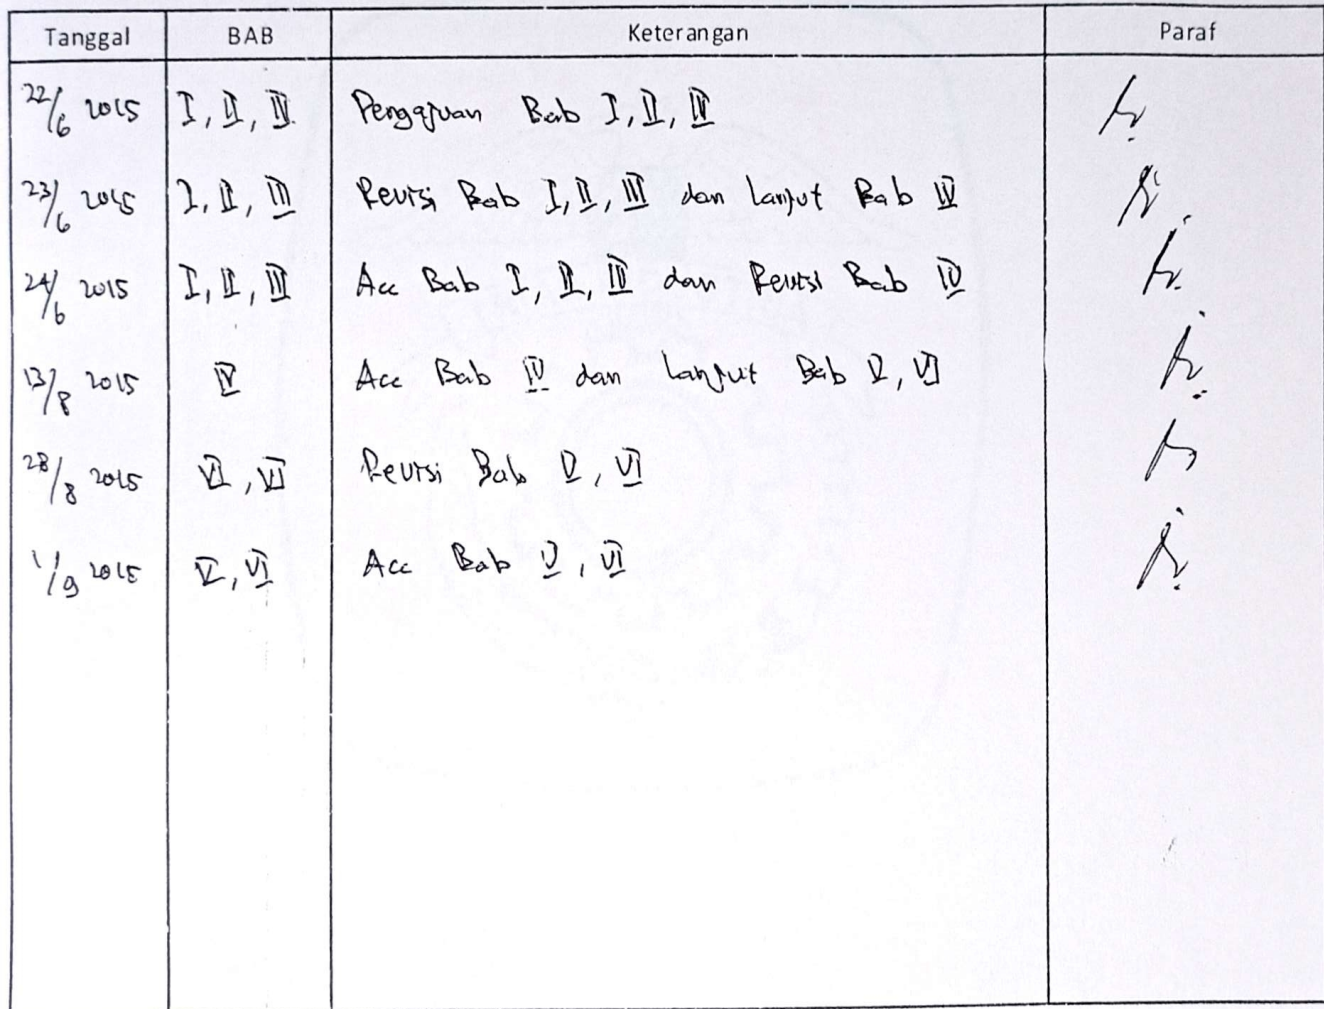 Tanggal BAB Keterangan Paraf
22/6 2015 I, II, III Pengajuan Bab I, II, III
23/6 2015 I, II, III Revisi Bab I, II, III dan lanjut Bab IV
24/6 2015 I, II, III Acc Bab I, II, III dan Revisi Bab IV
13/8 2015 IV Acc Bab IV dan lanjut Bab V, VI
28/8 2015 VI, VI Revisi Bab V, VI
1/9 2015 V, VI Acc Bab V, VI